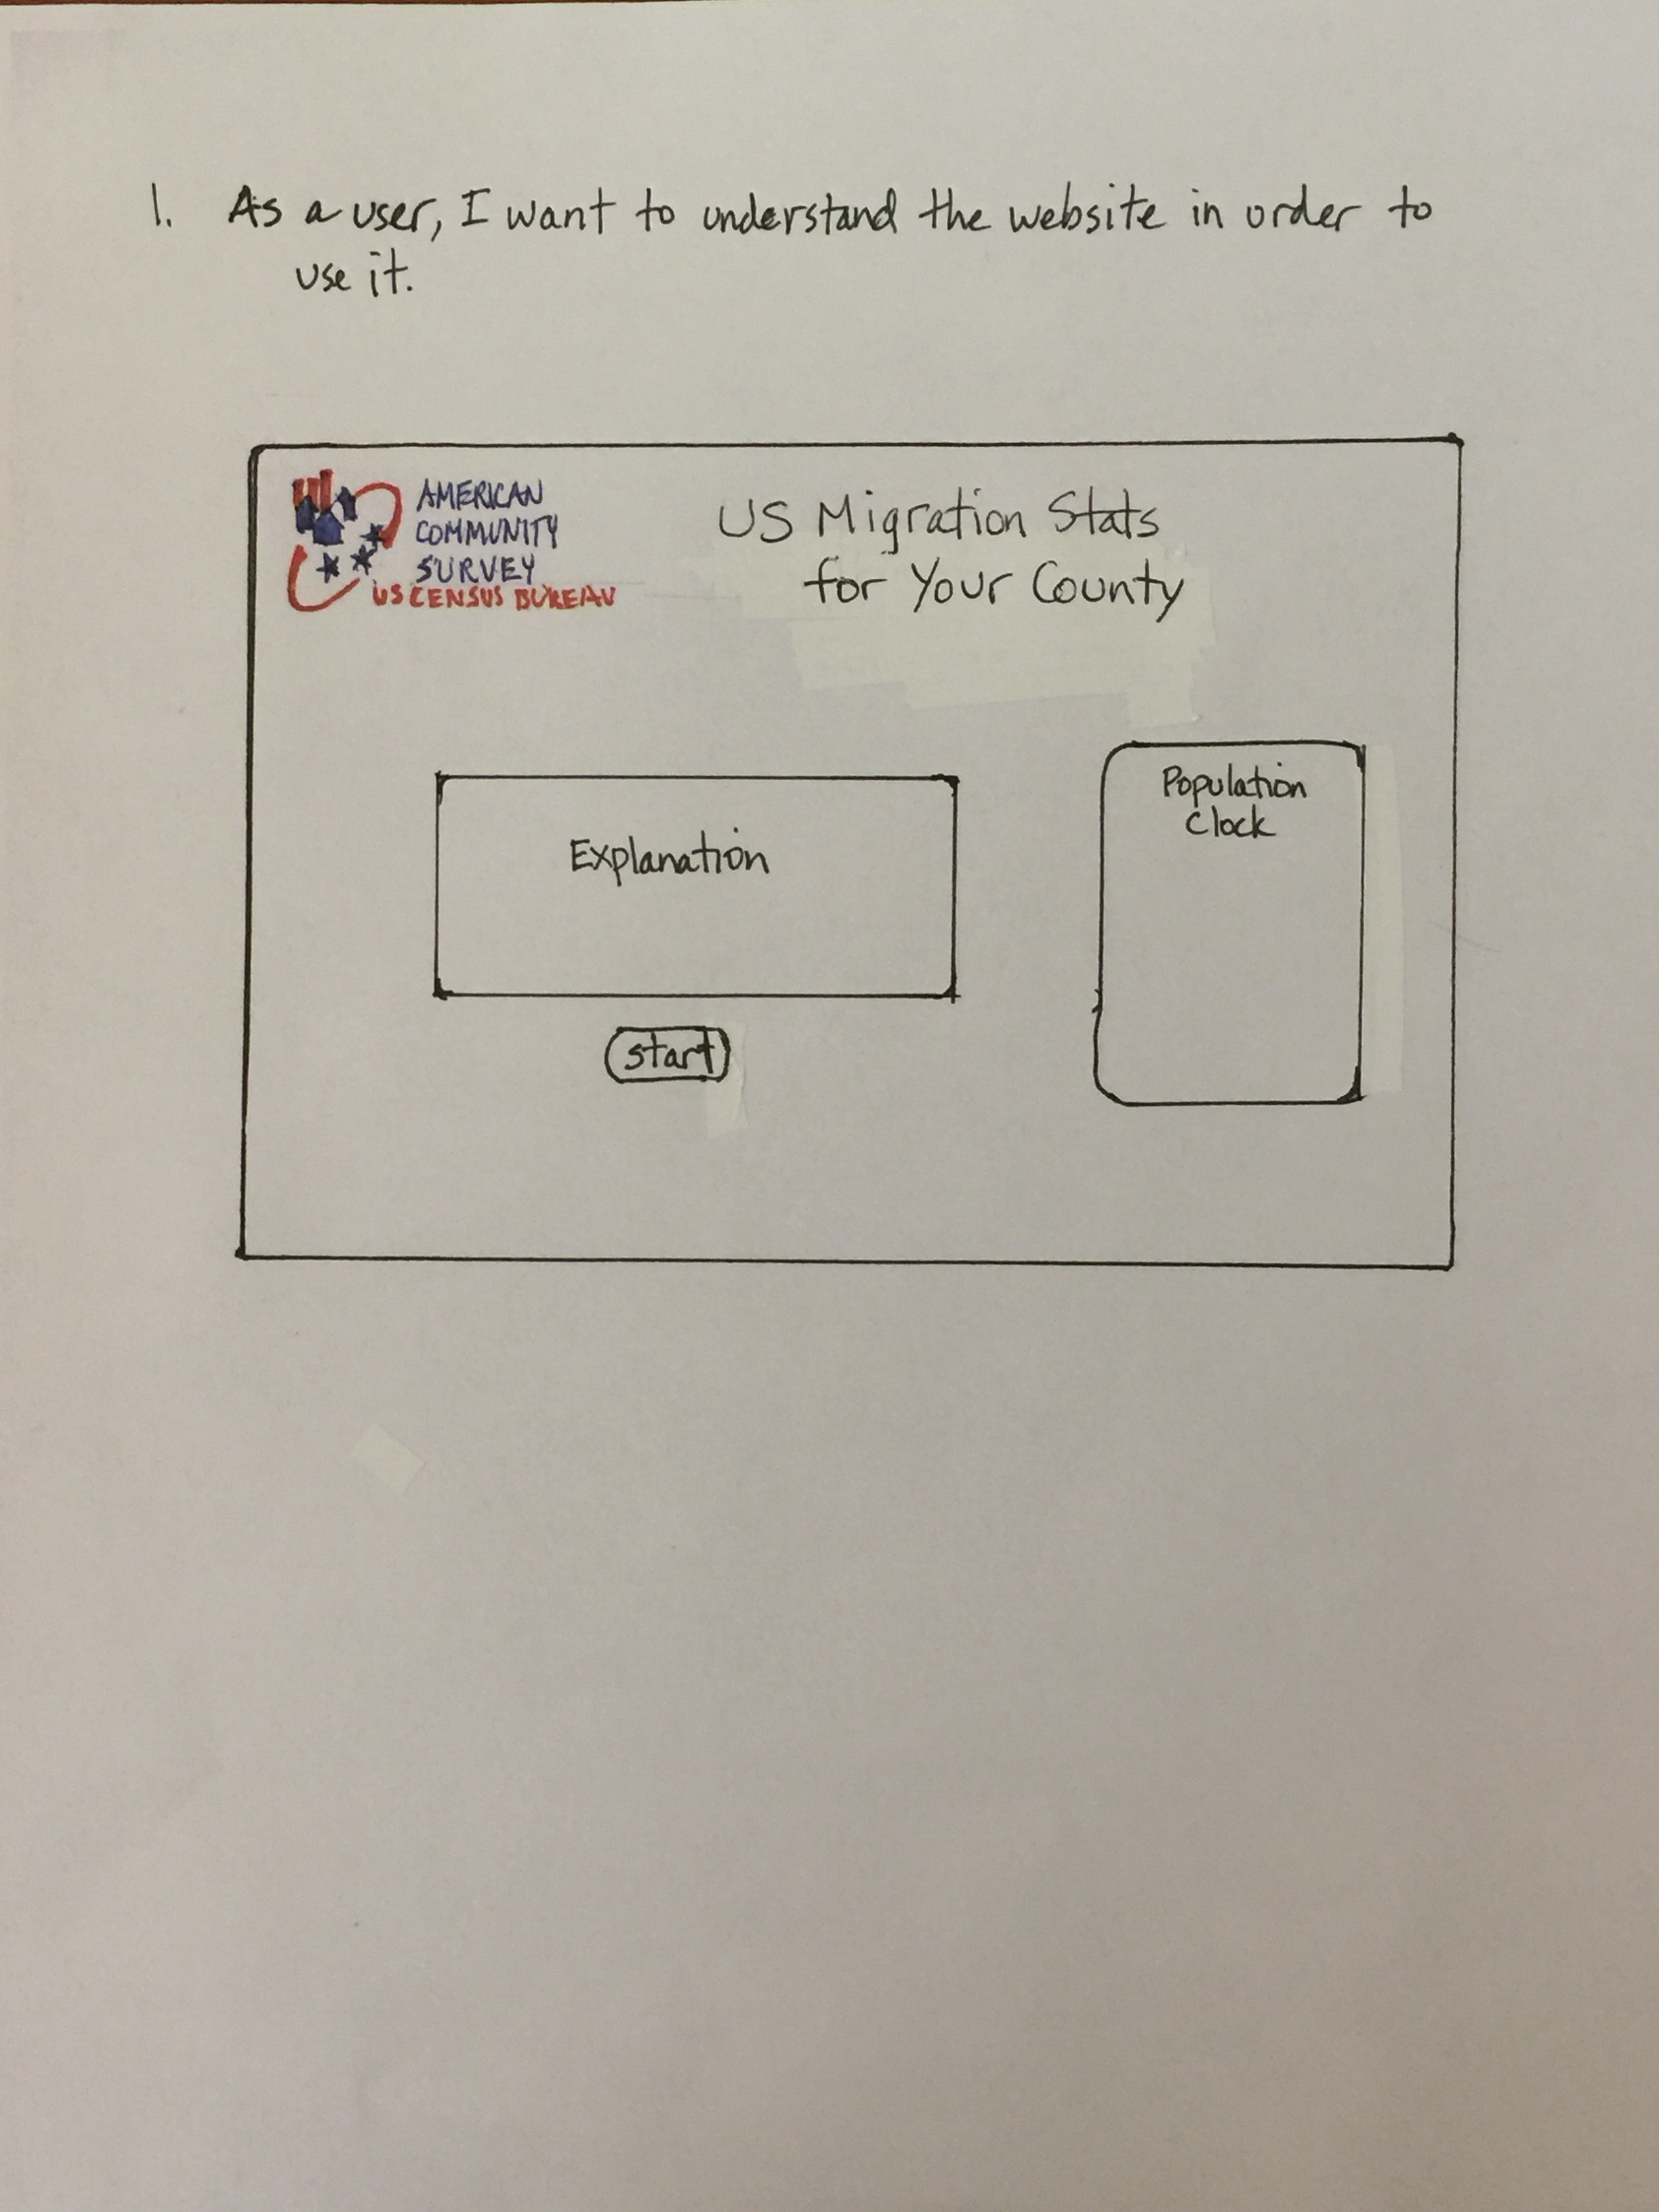 1. As a user, I want to understand the website in order to
use it.
AMERICAN
COMMUNITY
SURVEY
US CENSUS BUREAU
US Migration Stats
for Your County
Explanation
Population
Clock
start